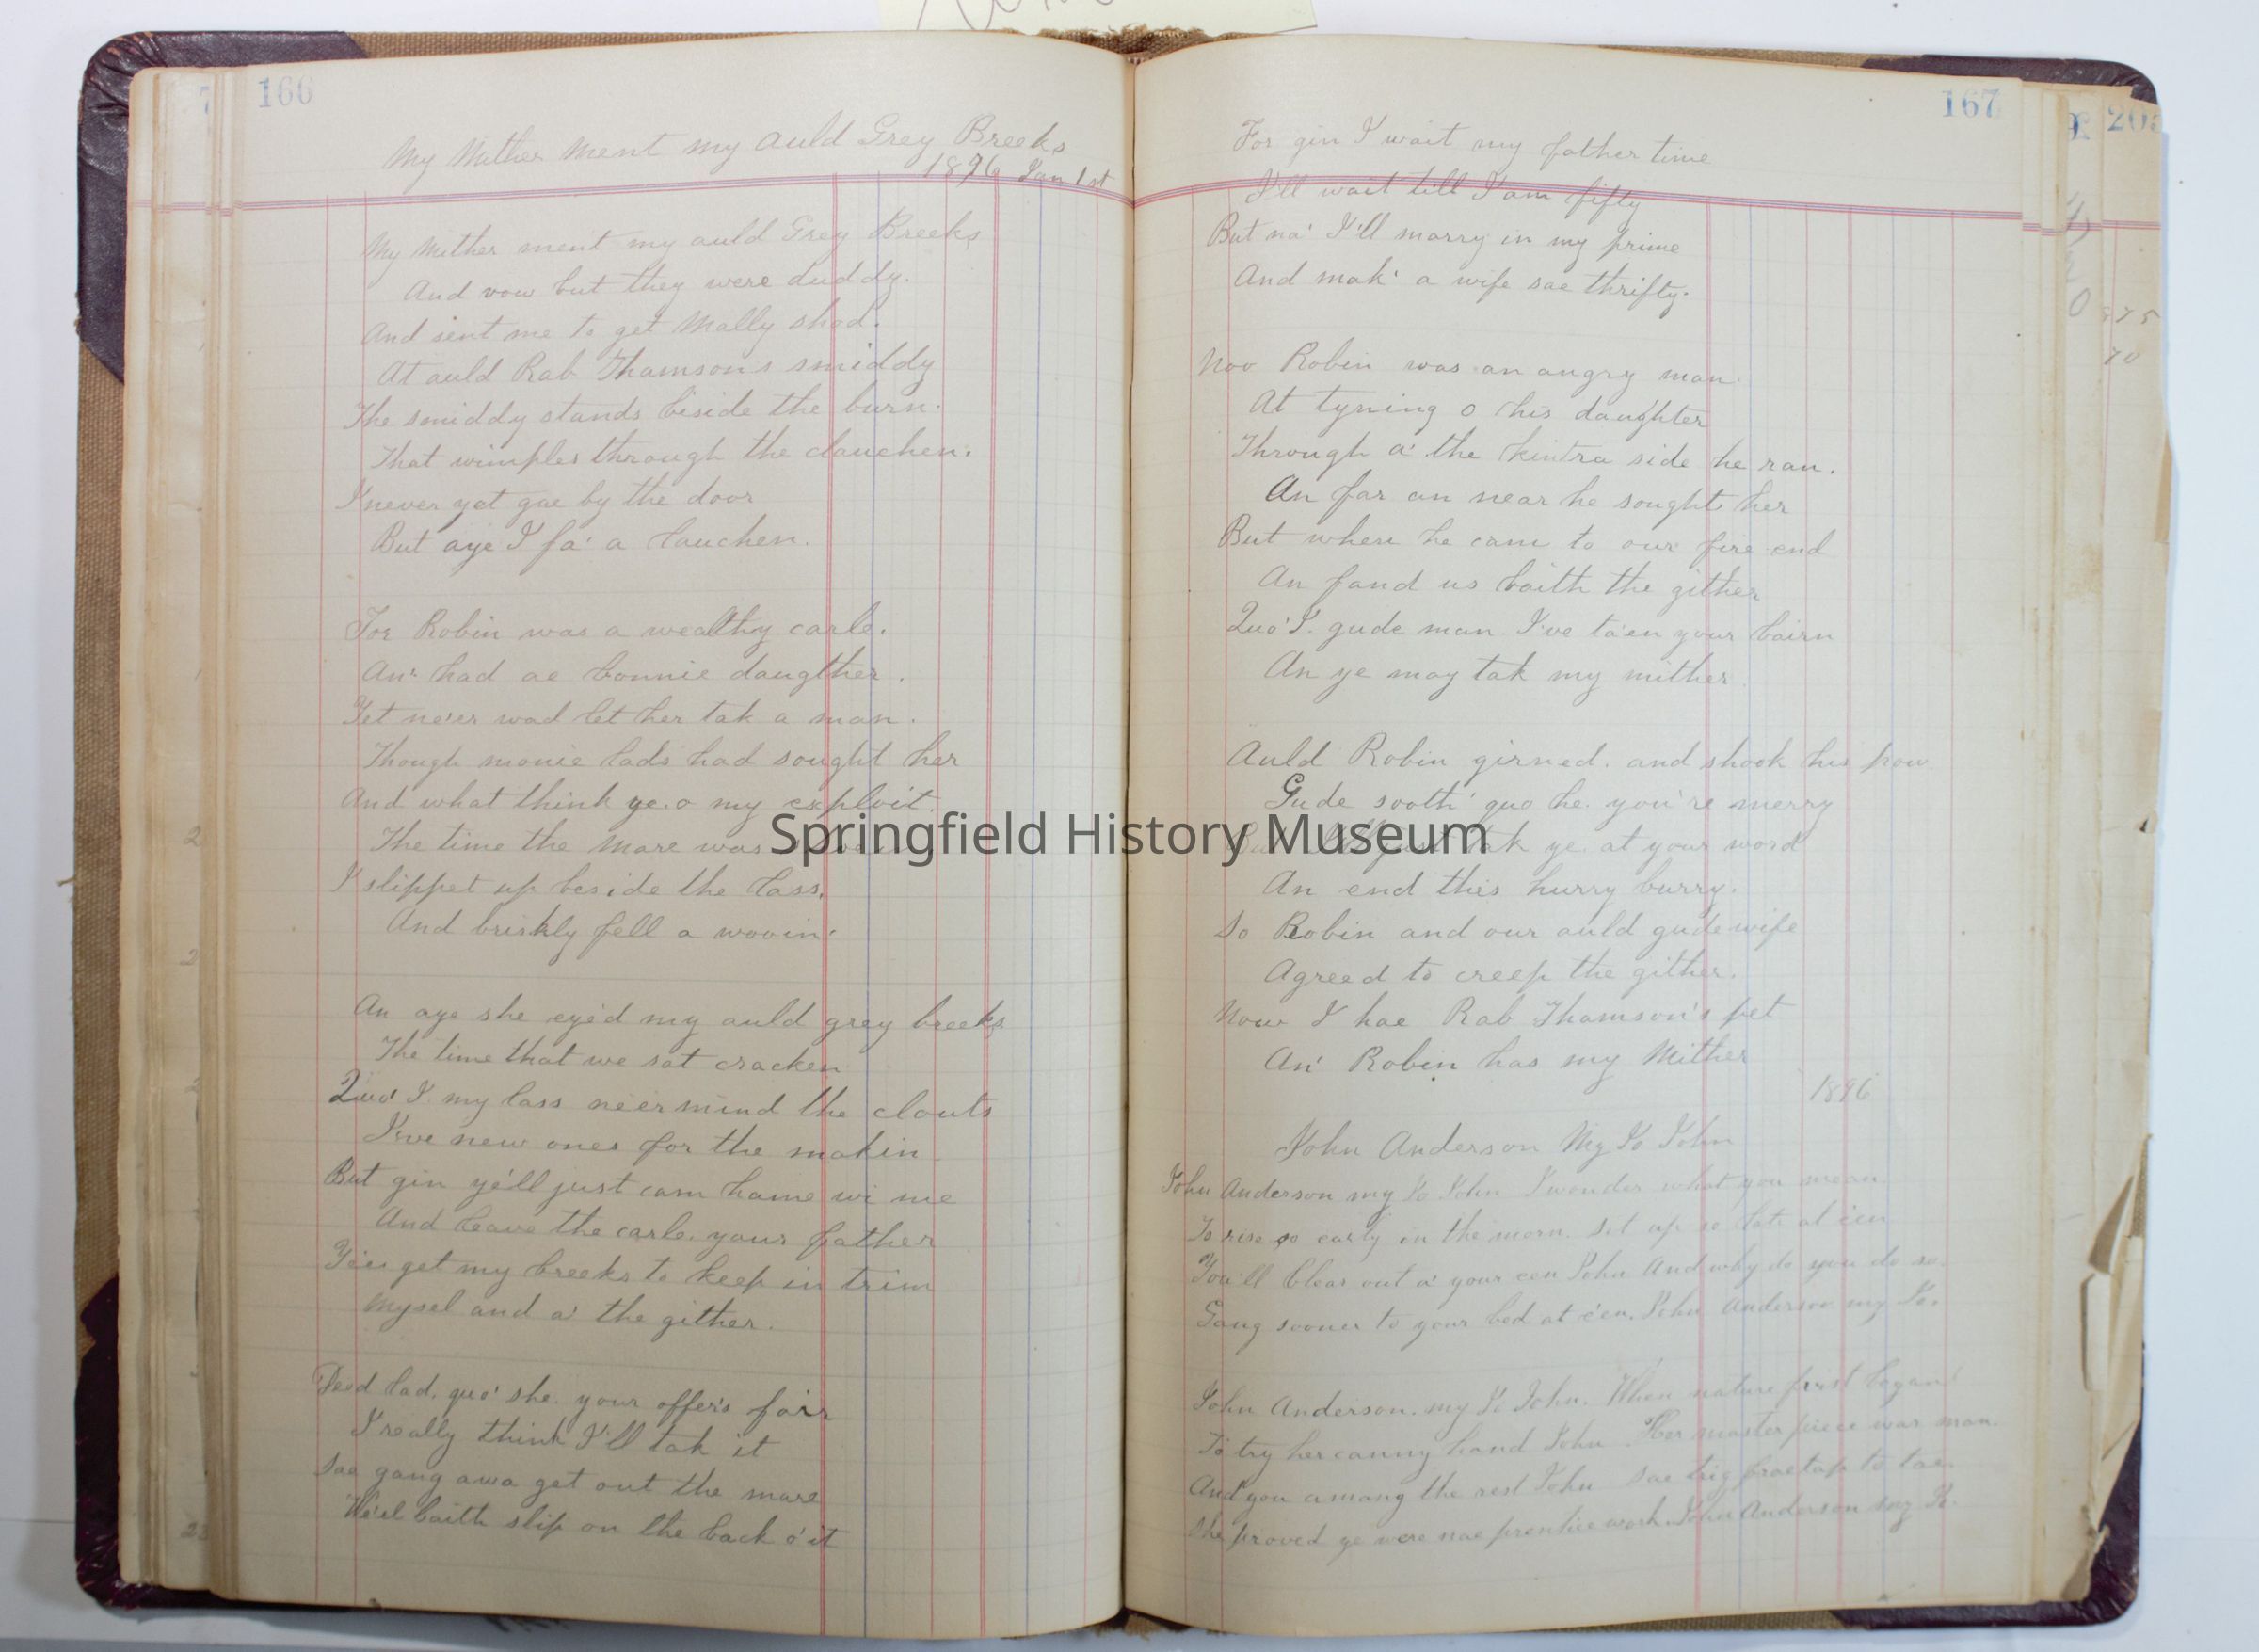 166
My Mither Ment my Auld Grey Breeks
1896 Jan 1st
My Mither ment my auld Grey Breeks
And vow but they were duddy.
And sent me to get Mally shod.
At auld Rab Thamson's smiddy
The smiddy stands beside the burn.
That wimples through the clauchen.
I never yet gae by the door
But aye I fa' a lauchen.
For Robin was a wealthy carle.
An' had ae bonnie daugther.
Yet ne'er wad let her tak a man.
Though monie lads had sought her
And what think ye.o my exploit.
The time the Mare was
I slippet up beside the lass.
And briskly fell a wooin'
An aye she eye'd my auld grey breeks
The time that we sat cracken
Quo' I. my lass ne'er mind the clouts
I've new ones for the makin
But gin ye'll just cam hame wi me
And leave the carle. your father
Ye'se get my breeks to keep in trim
Mysel and a' the gither.
Deed lad, quo' she. your offer's fair
I really think I'll tak it
Sae gang awa get out the mare
We'el baith slip on the back o'it
167
For gin I wait my father time
I'll wait till I'am fifty
But na' I'll marry in my prime
And mak' a wife sae thrifty.
Noo Robin was an angry man.
At tyning o his daughter
Through a' the kintra side he ran.
An far an near he sought her
But when he cam to our fire end
An fand us baith the gither
Quo'I. gude man I've ta'en your bairn
An ye may tak my mither.
Auld Robin girned. and shook his pow
Gude sooth' quo he. you're merry
But I'll just tak ye. at your word
An end this hurry burry.
So Robin and our auld gudewife
Agreed to creep the gither.
Now I hae Rab Thamson's pet
An' Robin has my Mither
1896
John Anderson My Jo John
John Anderson my Jo John I wonder what you mean
To rise so early in the morn. Set up so late at e'en
You'll blear out a' your een John And why do you do so.
Gang sooner to your bed at e'en. John Anderson my Jo.
John Anderson. my Jo John. When nature first began
To try her canny hand John. Her master piece was man.
And you amang the rest John Sae trig frae tap to tae.
She proved ye were nae prentice work. John Anderson my Jo.
Springfield History Museum